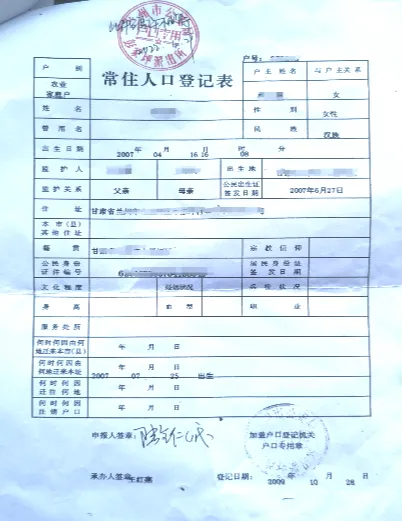 户号:
常住人口登记表
户别
农业家庭户
户主姓名
与户主关系
女
姓名
性别
女性
曾用名
民族
汉族
出生日期
2007年 04月 16 16时 08分
监护人
出生地
监护关系
父亲
母亲
公民出生证签发日期
2007年6月27日
住址
甘肃省
本市(县)其他住址
籍贯
甘肃
宗教信仰
公民身份证件编号
居民身份证签发日期
文化程度
婚姻状况
兵役状况
身高
血型
职业
服务处所
何时何因由何地迁来本市(县)
年 月 日
何时何因由何地迁来本址
2007年 07月 25日 出生
何时何因迁往何地
年 月 日
何时何因注销户口
年 月 日
申报人签章:
加盖户口登记机关
户口专用章
承办人签章:王红燕
登记日期: 2009年 10月 28日